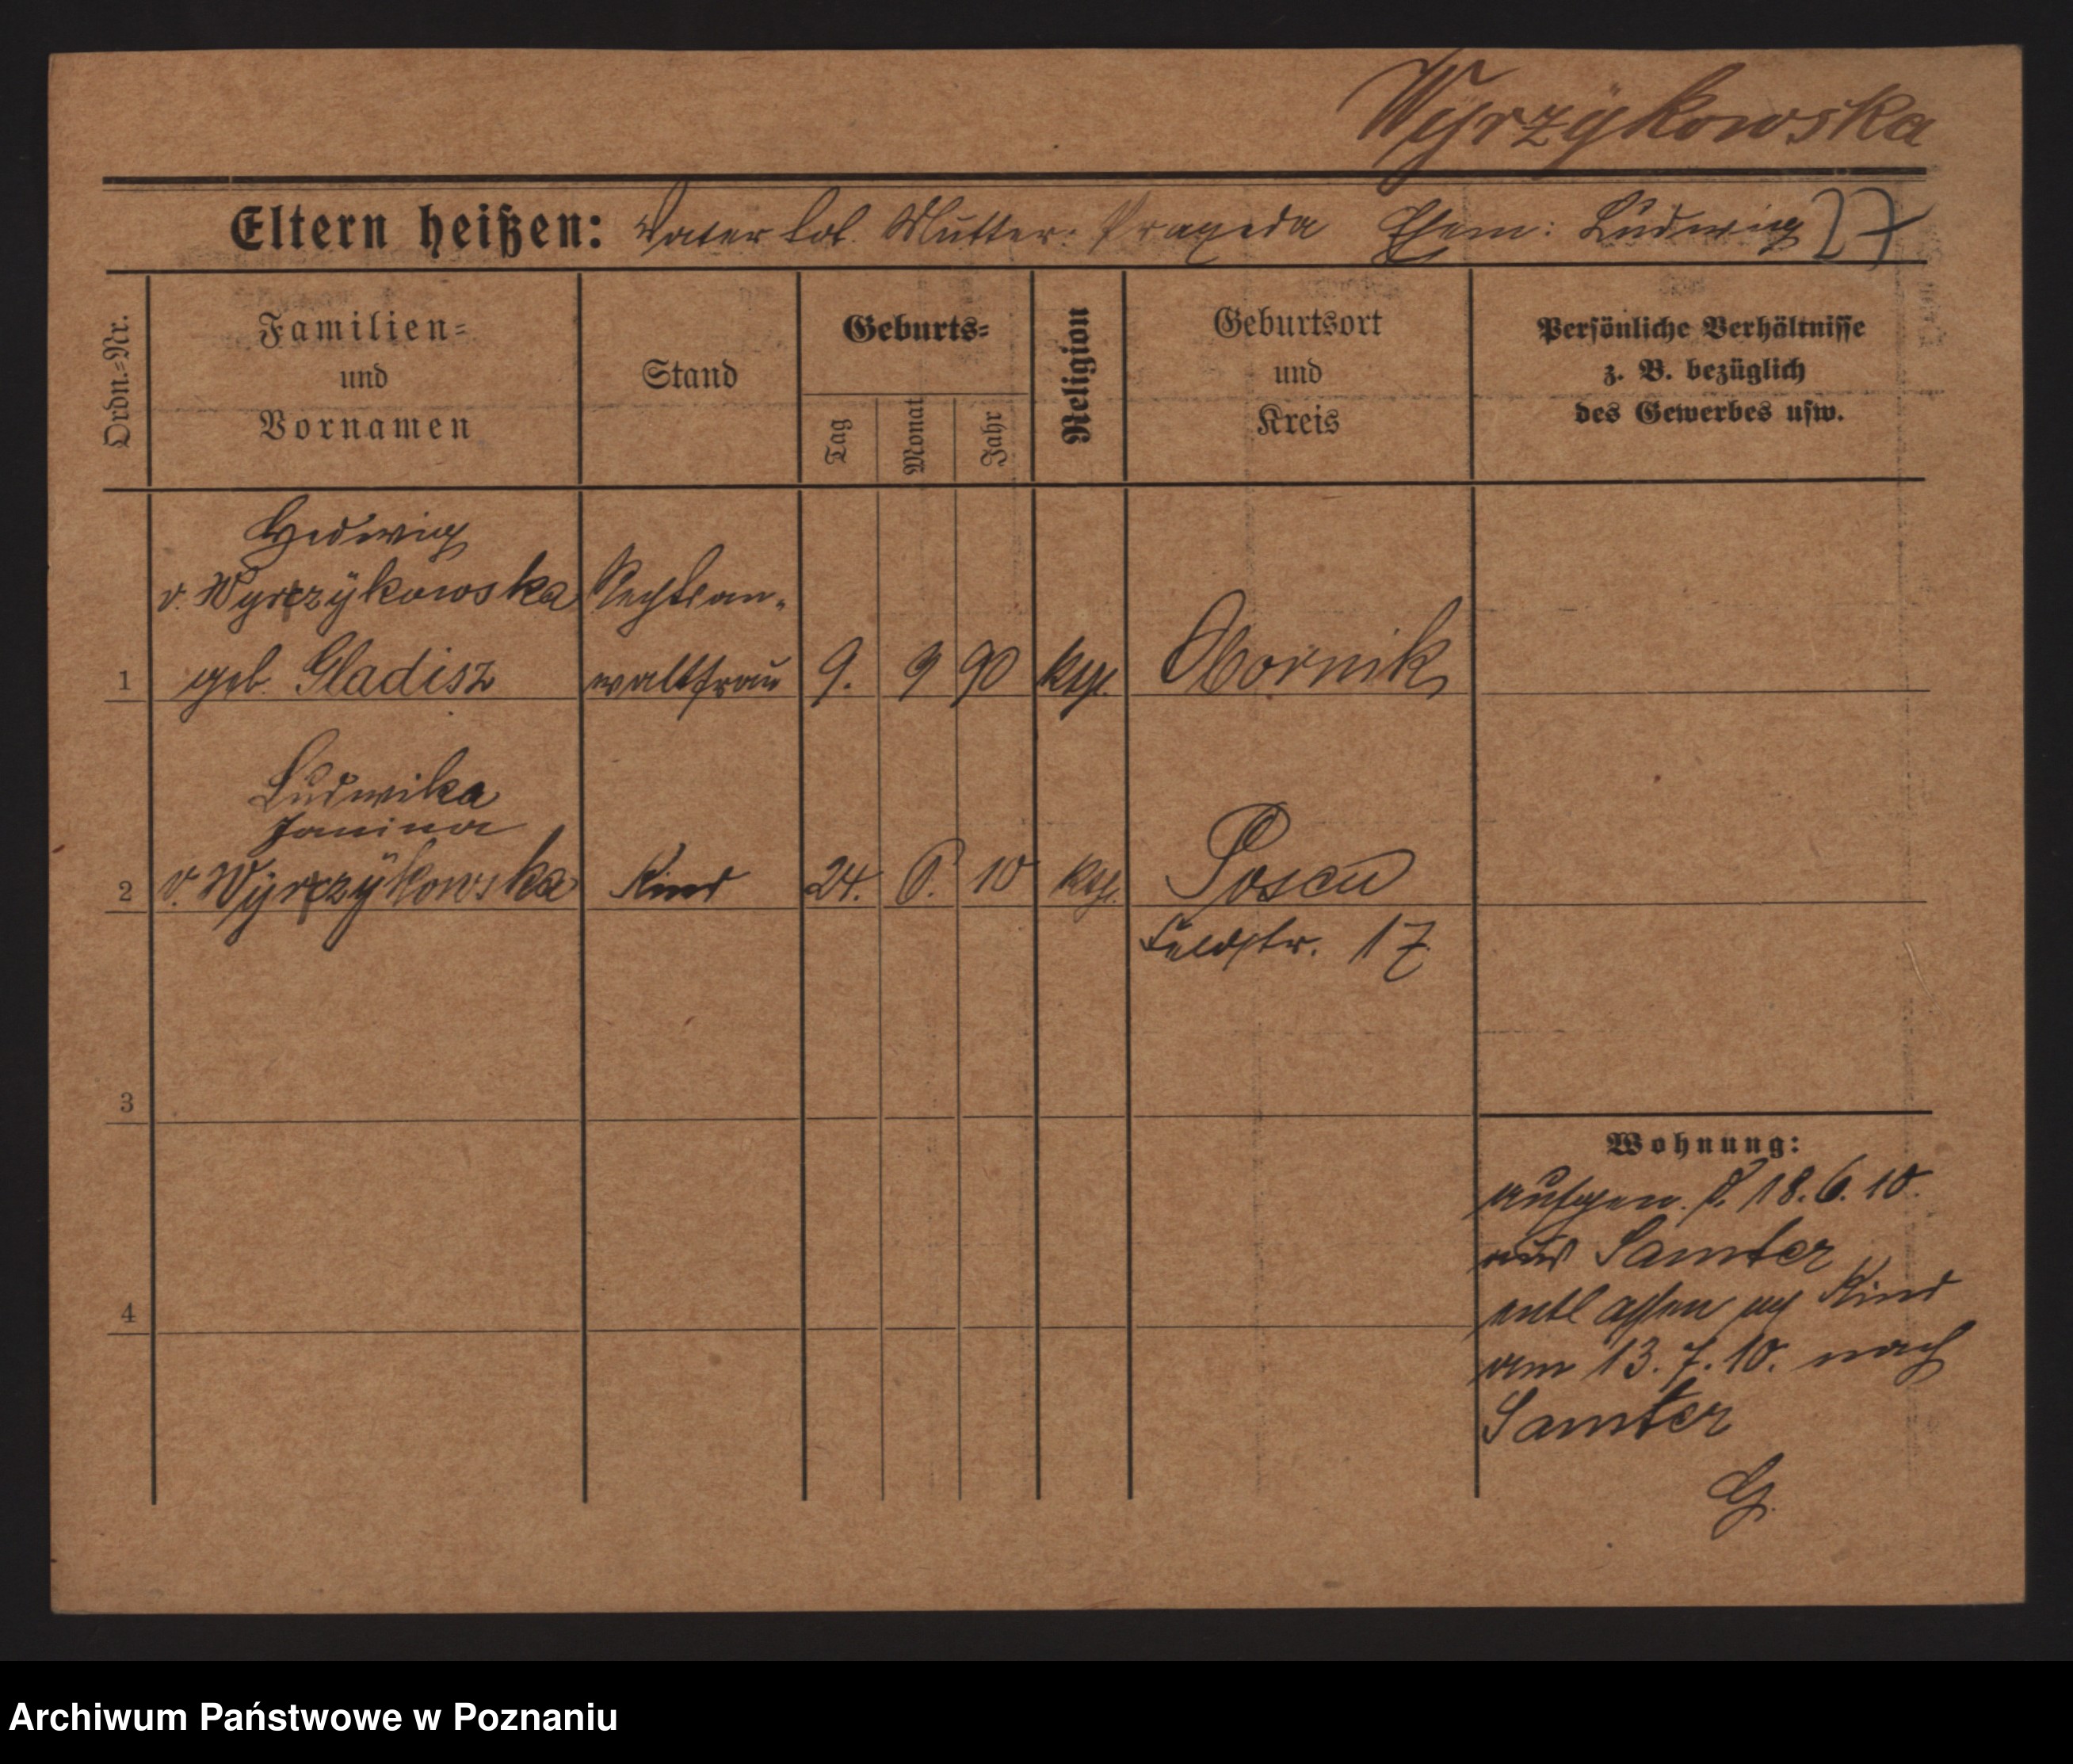 Wyrzÿkowska
Eltern heißen: Vater tot. Mutter: Praxeda Ehem: Ludwig 27
Ordn.-Nr.
Familien-
und
Vornamen
Stand
Geburts-
Tag
Monat
Jahr
Religion
Geburtsort
und
Kreis
Persönliche Verhältnisse
z. B. bezüglich
des Gewerbes usw.
Hedwig
v. Wyrzÿkowska Rechtsan-
1 geb. Gladisz waltsfrau 9. 9 90 ktl. Obornik
Ludwika
Janina
2 v. Wyrzÿkowska Kind 24. 6. 10 ktl. Posen
Feldstr. 17
3
Wohnung:
aufgen. d. 18. 6. 10.
aus Samter
4
entlassen Kind
am 13. 7. 10. nach
Samter
G.
Archiwum Państwowe w Poznaniu